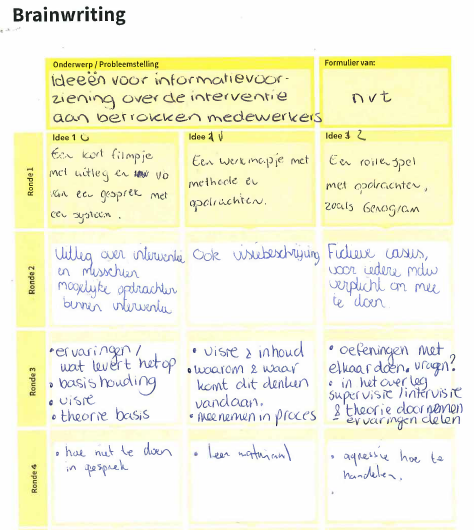 Brainwriting
Onderwerp / Probleemstelling
Formulier van:
Ideeën voor informatievoor-
ziening over de interventie
aan betrokken medewerkers
nvt
Idee 1
Idee 2
Idee 3
Ronde 1
Een kort filmpje
met uitleg en vb
van een gesprek met
een systeem.
Een werkmapje met
methode en
opdrachten.
Een rollenspel
met opdrachten,
zoals Genogram
Ronde 2
Uitleg over interventie
en misschien
mogelijke opdrachten
binnen interventie
Ook visiebeschrijving
Fictieve casus,
voor iedere mdw
verplicht om mee
te doen.
Ronde 3
• ervaringen /
wat levert het op
• basishouding
• visie
• theorie basis
• visie & inhoud
• waarom & waar
komt dit denken
vandaan.
• meenemen in proces
• oefeningen met
elkaar doen. vragen?
• in het overleg
supervisie / intervisie
& theorie doornemen
- ervaringen delen
Ronde 4
• hoe niet te doen
in gesprek
• leer materiaal
• agressie hoe te
handelen.